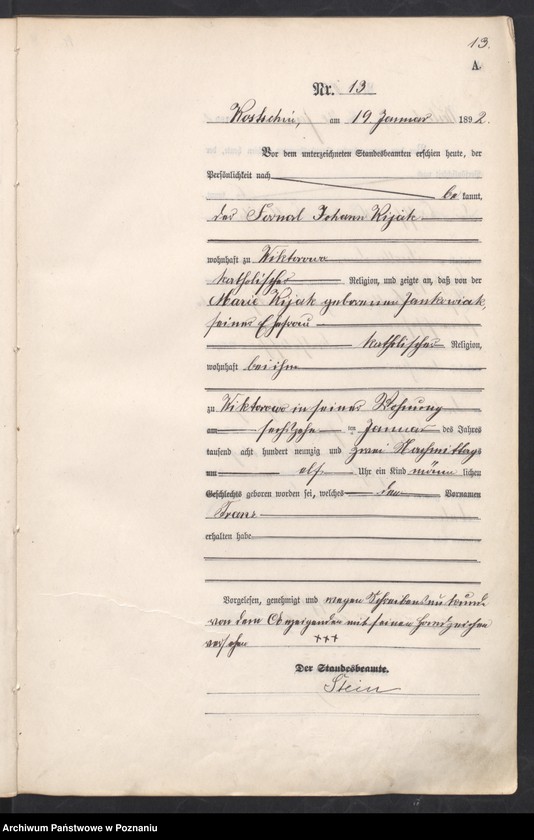 13.
A.
Nr. 13
Kostschin, am 19 Januar 1892.
Vor dem unterzeichneten Standesbeamten erschien heute, der
Persönlichkeit nach
be kannt,
der Fornal Johann Kijak
wohnhaft zu Wiktorowo
katholischer Religion, und zeigte an, daß von der
Marie Kijak geborenen Jankowiak,
seiner Ehefrau
katholischer Religion,
wohnhaft bei ihm
zu Wiktorowo in seiner Wohnung
am sechszehn ten Januar des Jahres
tausend acht hundert neunzig und zwei Nachmittags
um elf Uhr ein Kind männ lichen
Geschlechts geboren worden sei, welches den Vornamen
Franz
erhalten habe
Vorgelesen, genehmigt und wegen Schreibensunkunde
von dem Anzeigenden mit seinen Handzeichen
versehen +++
Der Standesbeamte.
Stein
Archiwum Państwowe w Poznaniu